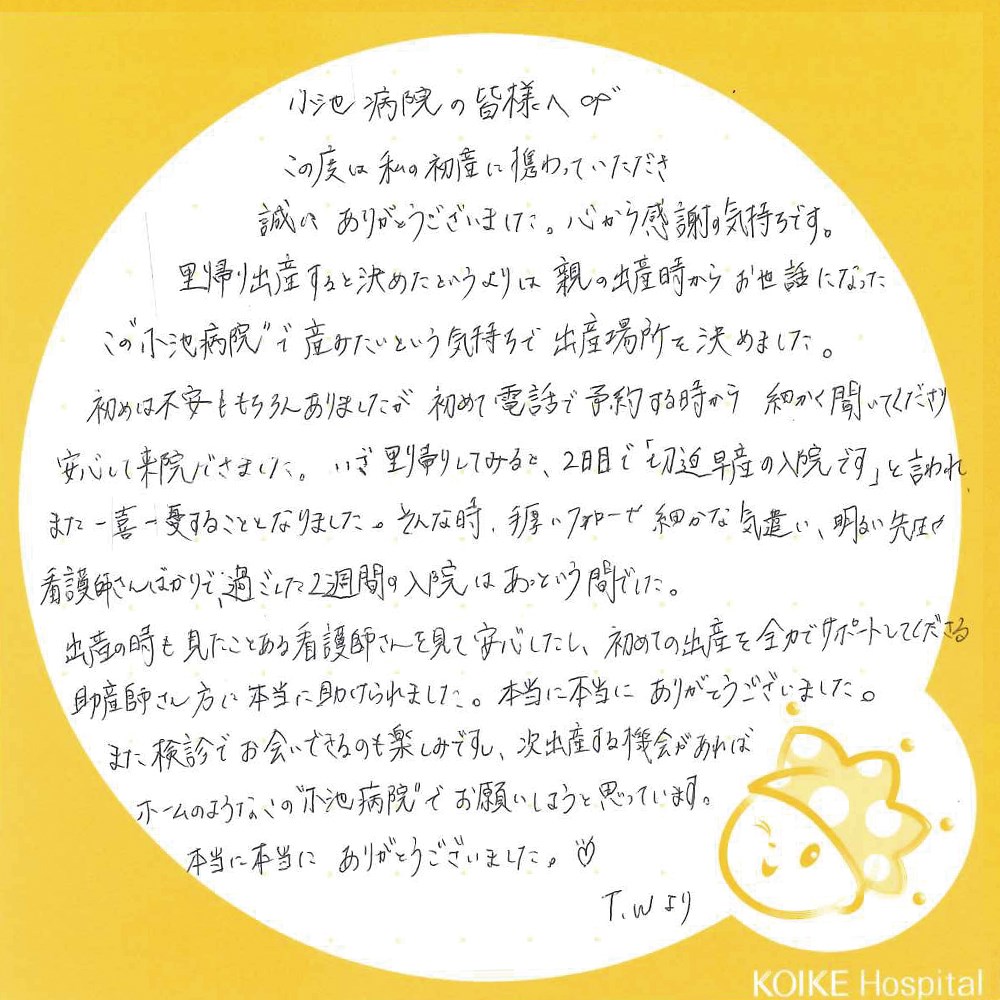 小池病院の皆様へ
この度は私の初産に携わっていただき
誠に ありがとうございました。心から感謝の気持ちです。
里帰り出産すると決めたというよりは 親の出産時から お世話になった
この"小池病院"で産みたいという気持ちで 出産場所を決めました。
初めは不安ももちろんありましたが 初めて電話で予約する時から 細かく聞いてくださり
安心して来院できました。いざ里帰りしてみると、2日目で「切迫早産の入院です」と言われ、
また一喜一憂することとなりました。そんな時、手厚いフォローや細かな気遣い、明るい先生や
看護師さんばかりで、過ごした2週間の入院はあっという間でした。
出産の時も見たことある看護師さんを見て安心したし、初めての出産を全力でサポートしてくださる
助産師さん方に本当に助けられました。本当に本当に ありがとうございました。
また検診でお会いできるのも楽しみですし、次出産する機会があれば
ホームのような、この"小池病院"でお願いしようと思っています。
本当に本当に ありがとうございました。♡
T.Wより
KOIKE Hospital